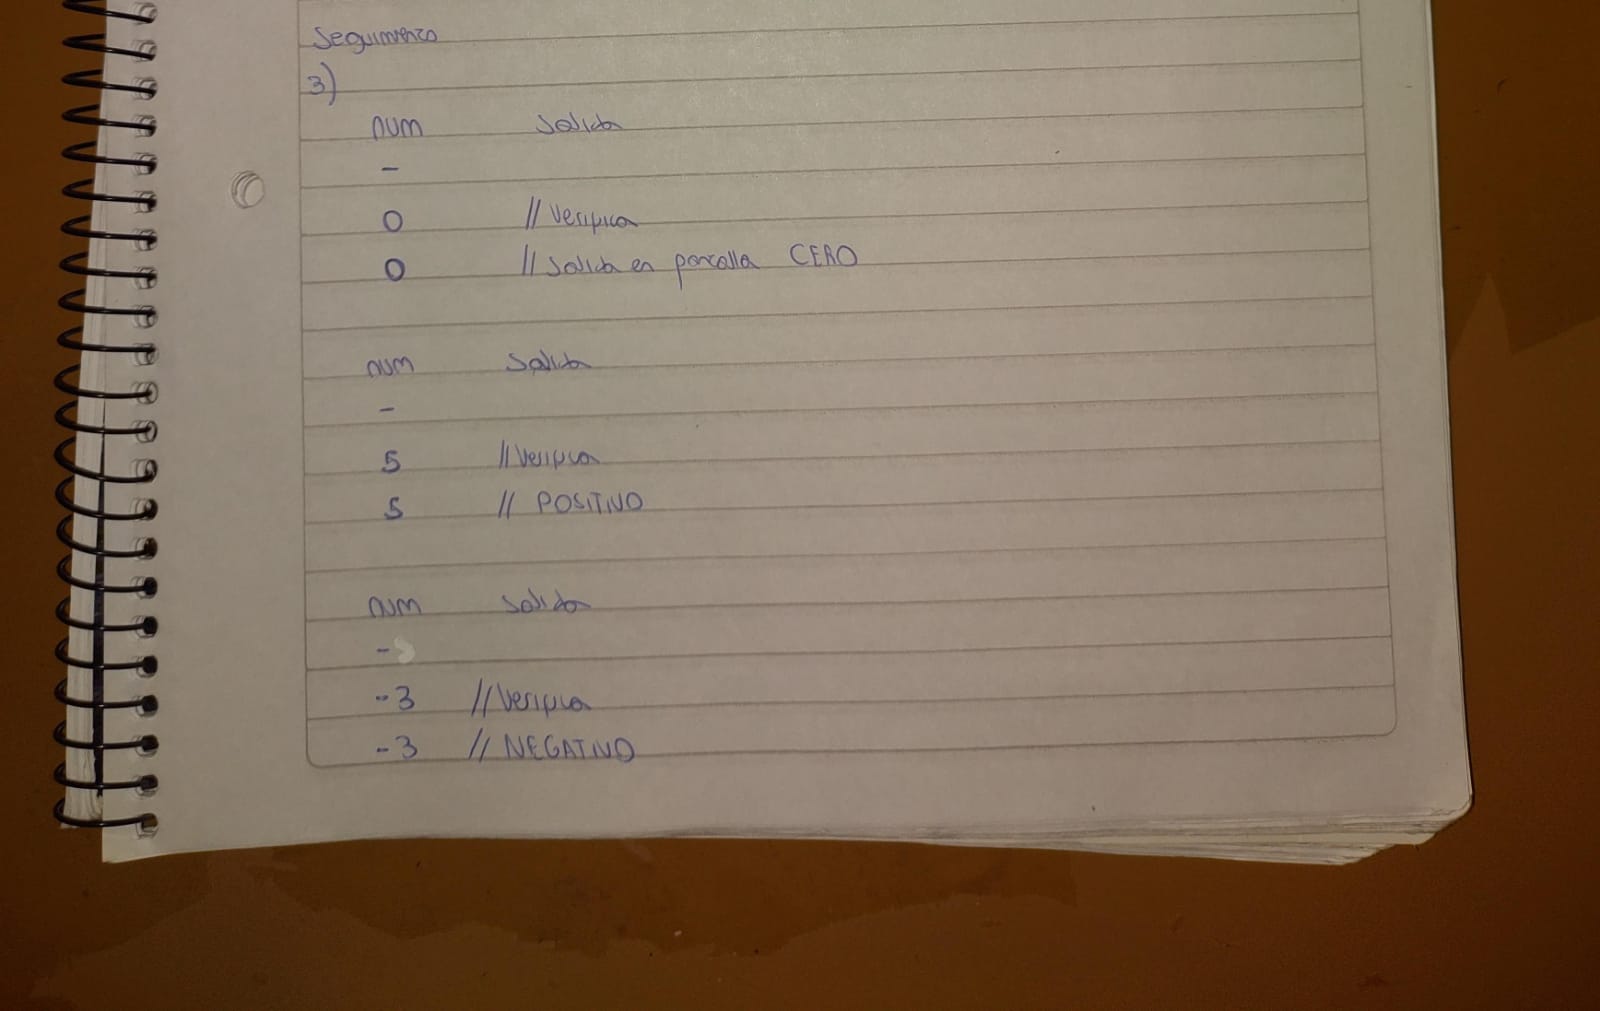 Seguimiento
3)
num salida
-
0 // Verifica
0 // Salida en pantalla CERO
num salida
-
5 // Verifica
5 // POSITIVO
num salida
-
-3 // Verifica
-3 // NEGATIVO